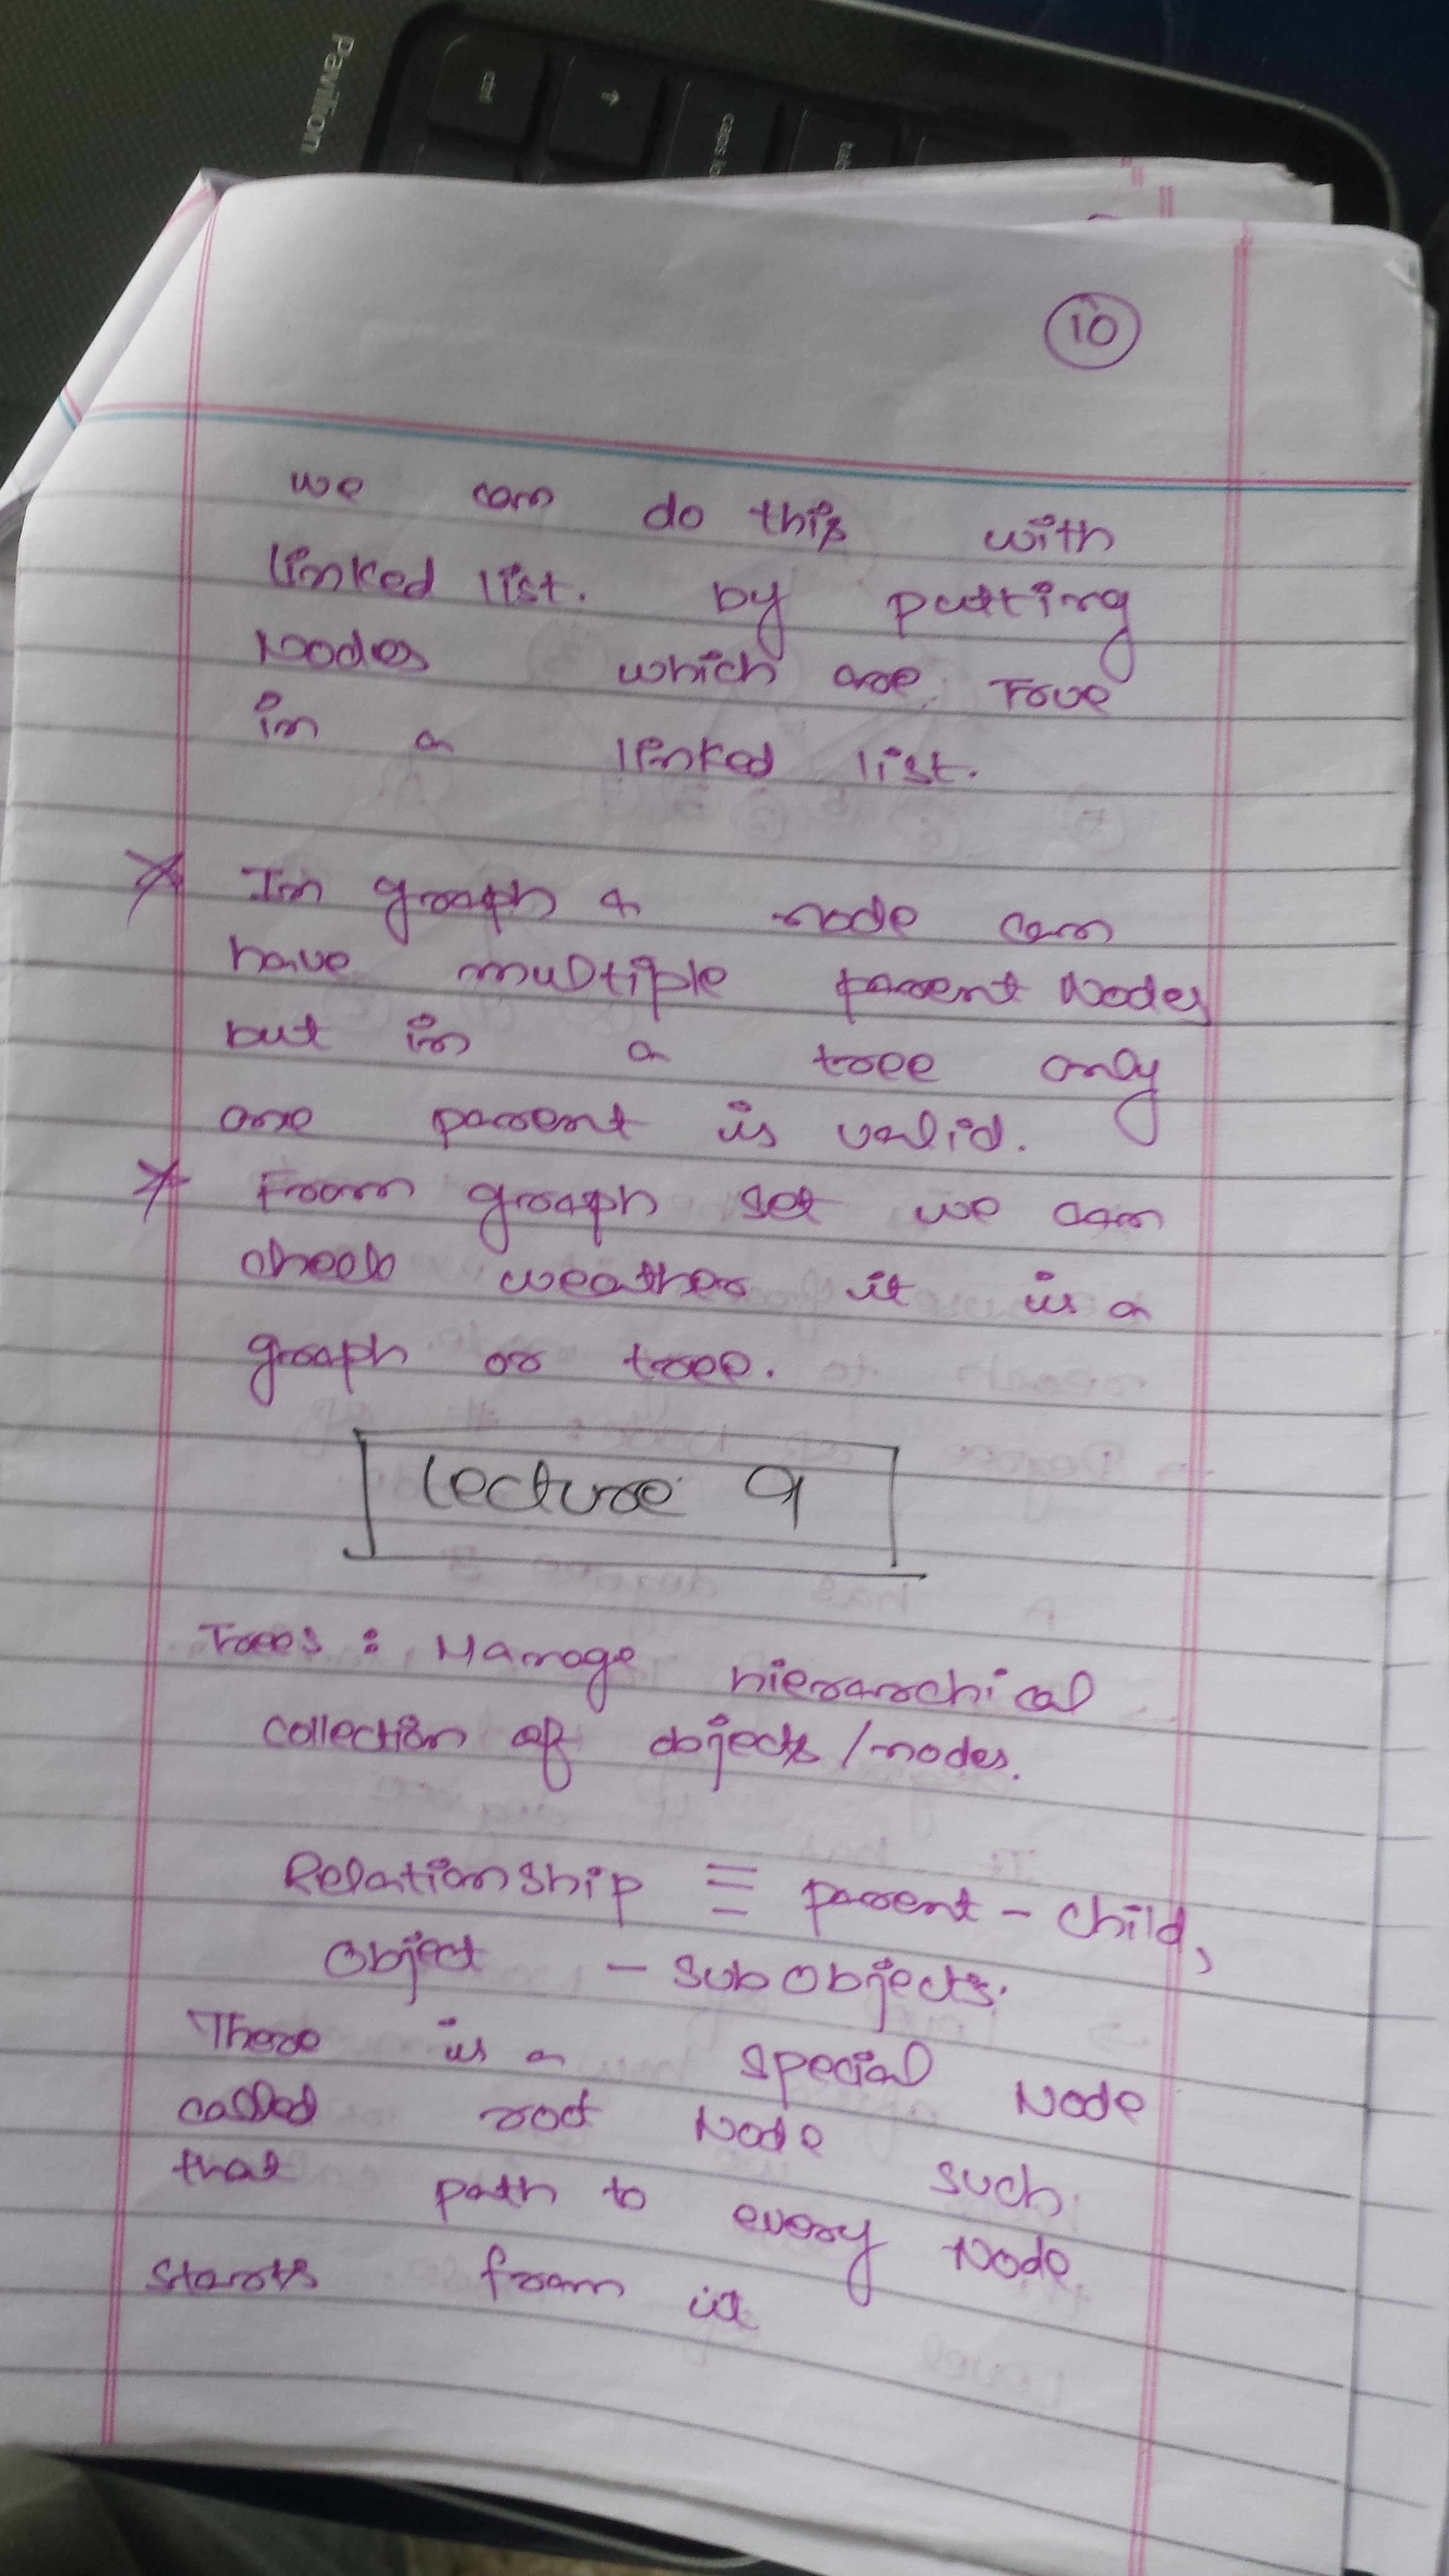 Pavilion
ctrl
↑
caps lo
tab
10
we can do this with
linked list. by putting
Nodes which are True
in a linked list.
* In graph a node can
have multiple parent Nodes
but in a tree only
one parent is valid.
* From graph set we can
check weather it is a
graph or tree.
Lecture 9
Trees : Manage hierarchical
collection of objects/nodes.
Relationship ≡ parent - child,
Object - subobjects.
There is a special Node
called root Node such
that path to every Node
starts from it